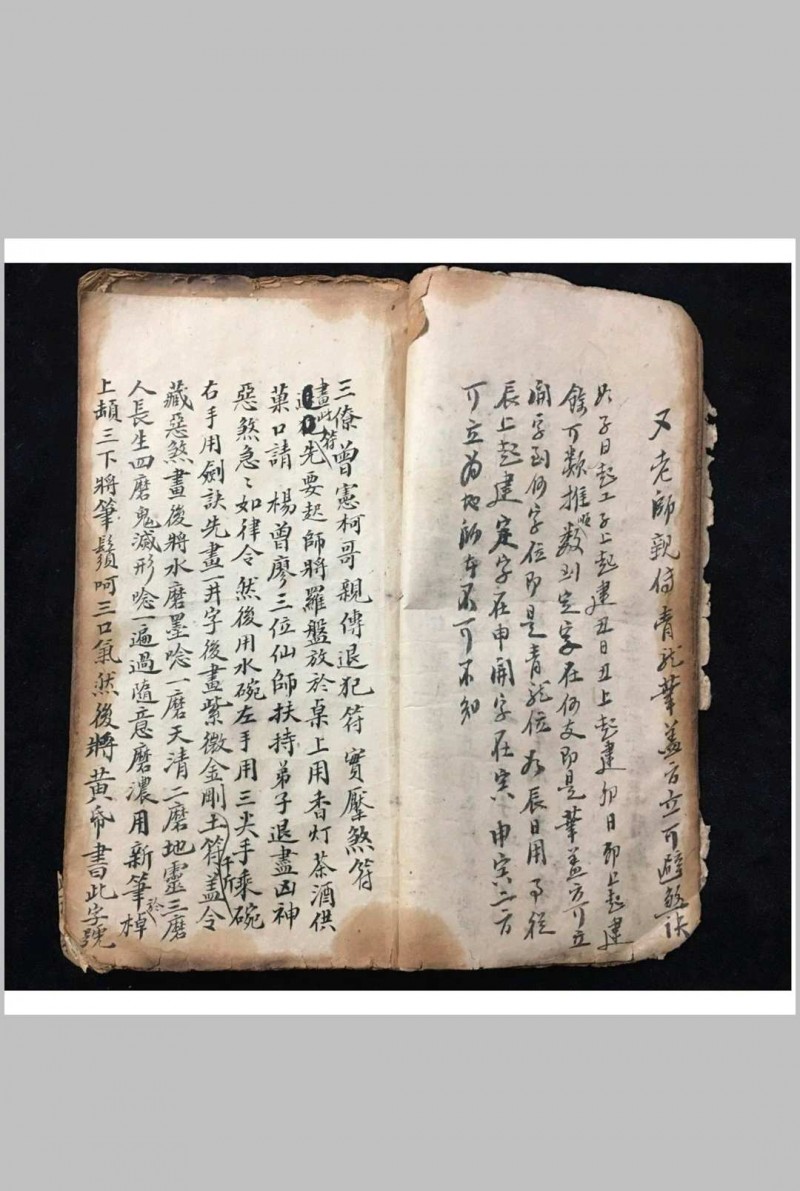 又老師親傳青龍華蓋方立可避煞訣
如子日起工子上起建丑日丑上起建卯日卯上起建
餘可類推照数到定字在何支即是華盖方可立
開字到何字位即是青龍位如辰日用事從
辰上起建定字在申開字在寅申寅二方
可立為地師者不可不知
三僚曾憲柯哥親傳退犯符 實壓煞符
畫此符先要起師將羅盤放於桌上用香灯茶酒供
菓口請 楊曾廖三位仙師扶持弟子退盡凶神
惡煞急〻如律令然後用水碗左手用三尖手乘碗
右手用劍訣先畫一井字後畫紫微金剛土符盖令
藏惡煞畫後將水磨墨唸一磨天清二磨地靈三磨
人長生四磨鬼滅形唸一遍過隨意磨濃用新筆於棹
上頓三下將筆鬚呵三口氣然後將黃帋書此字號